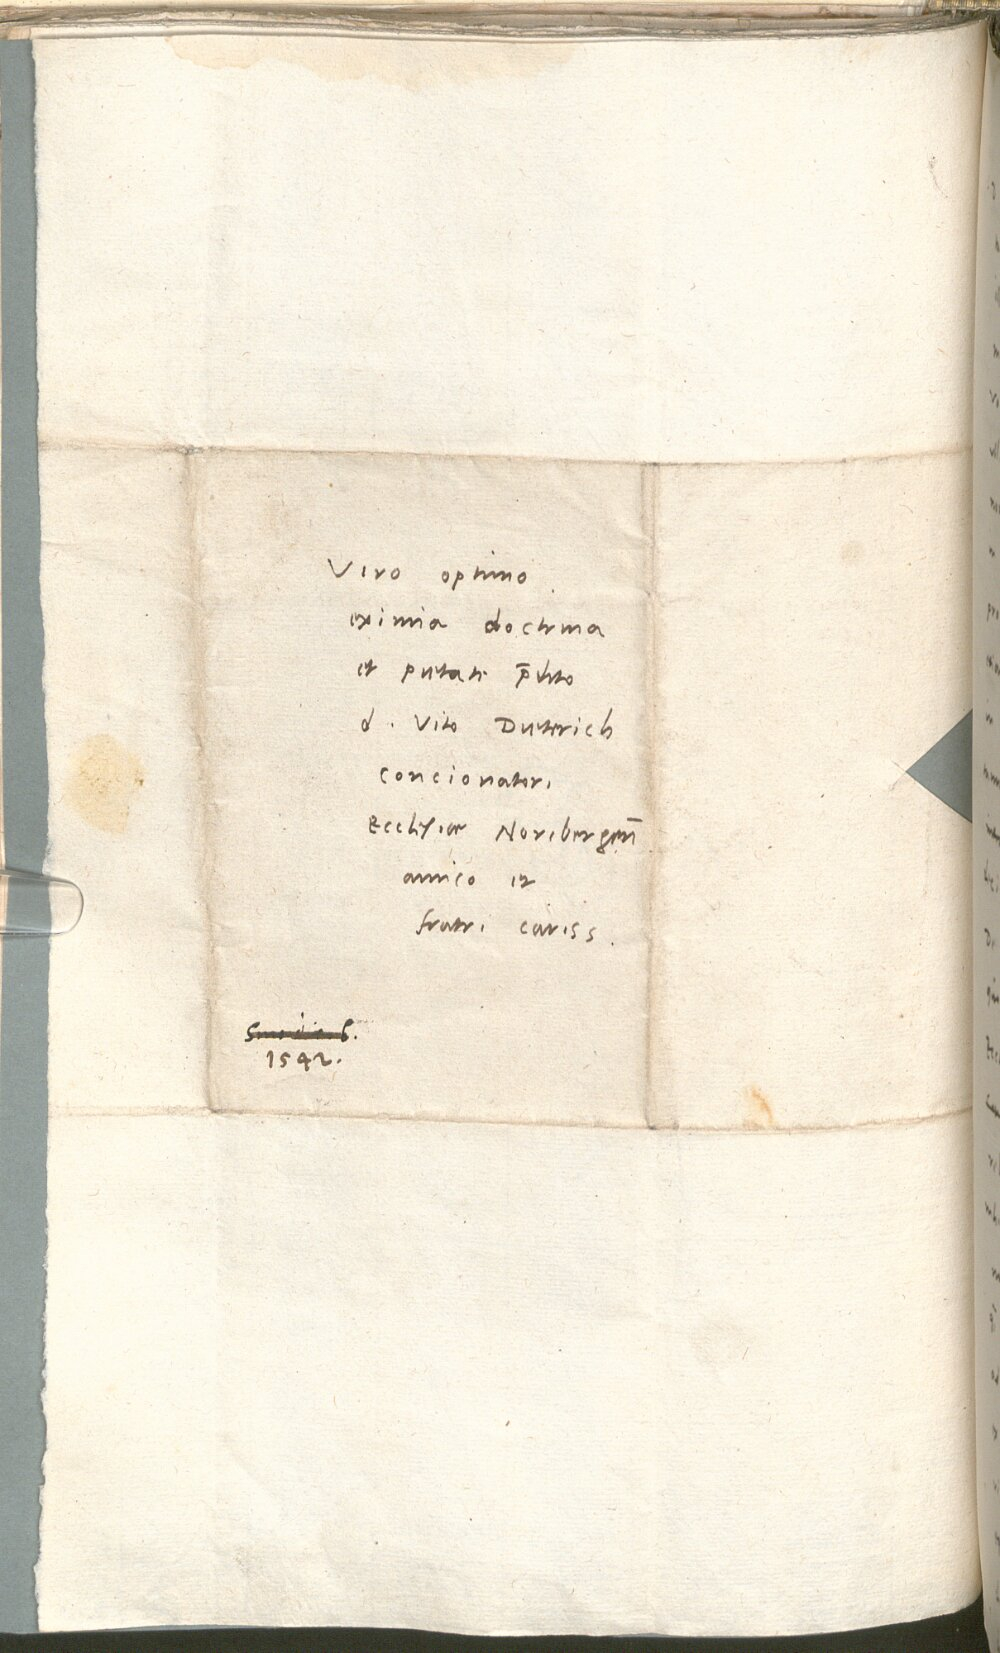 Viro optimo
eximia doctrina
et pietate p̄dito
d. Vito Dieterich
concionatori
Ecclesiae Noribergen̄
amico et
fratri cariss.
1542.